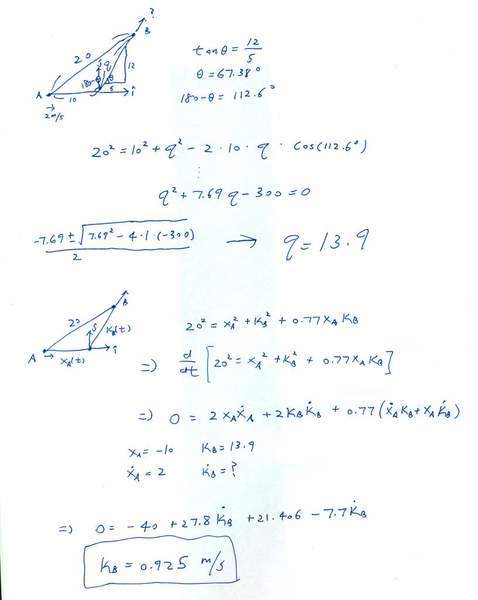 ?
B
20
q
12
180-θ
θ
5
A
10
î
2m/s
tanθ = 12/5
θ = 67.38°
180-θ = 112.6°
20² = 10² + q² - 2 · 10 · q · cos(112.6°)
⋮
q² + 7.69 q - 300 = 0
-7.69 ± √7.69² - 4·1·(-300) / 2 → q = 13.9
B
20
S
K_B(t)
A
X_A(t)
î
20² = x_A² + K_B² + 0.77 x_A K_B
⇒ d/dt [20² = x_A² + K_B² + 0.77 x_A K_B]
⇒ 0 = 2 x_A ẋ_A + 2 K_B K̇_B + 0.77 (ẋ_A K_B + x_A K̇_B)
x_A = -10 K_B = 13.9
ẋ_A = 2 K̇_B = ?
⇒ 0 = -40 + 27.8 K̇_B + 21.406 - 7.7 K̇_B
K̇_B = 0.925 m/s